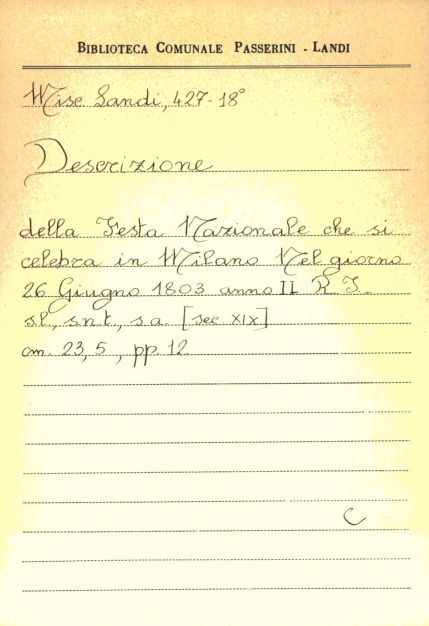 BIBLIOTECA COMUNALE PASSERINI - LANDI
Misc Landi, 427-18°
Descrizione
della Festa Nazionale che si
celebra in Milano Nel giorno
26 Giugno 1803 anno II R. I.
s.l., s.n.t., s.a. [sec. XIX]
cm. 23,5, pp. 12
C